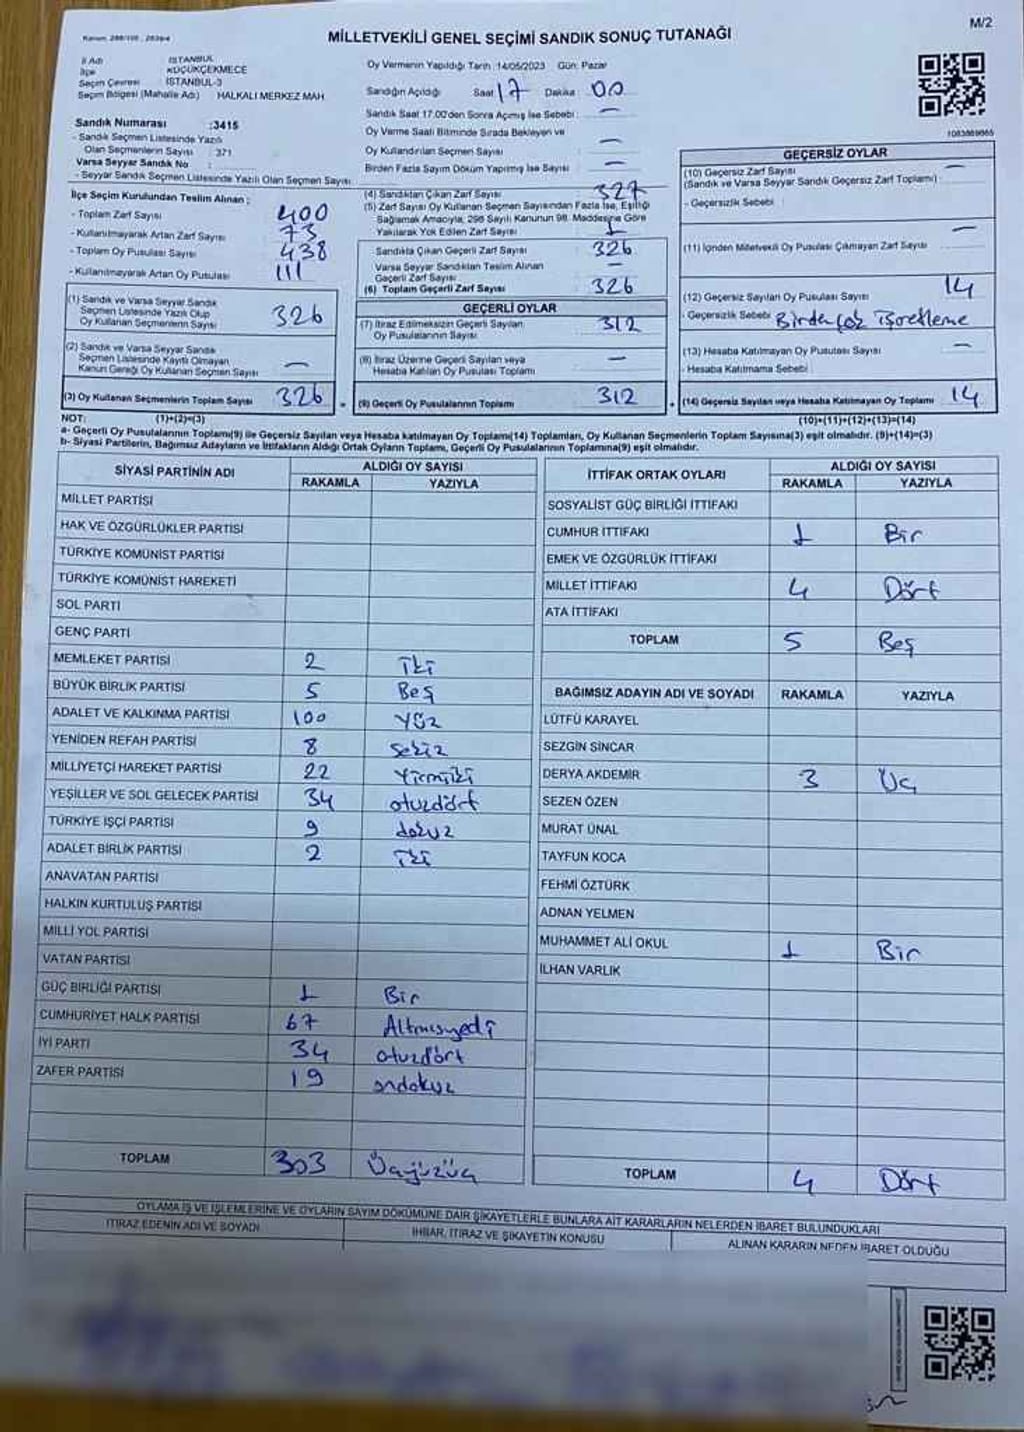 M/2
MİLLETVEKİLİ GENEL SEÇİMİ SANDIK SONUÇ TUTANAĞI
İl Adı : İSTANBUL
İlçe : KÜÇÜKÇEKMECE
Seçim Çevresi : İSTANBUL-3
Seçim Bölgesi (Mahalle Adı) : HALKALI MERKEZ MAH.
Sandık Numarası :3415
- Sandık Seçmen Listesinde Yazılı
Olan Seçmenlerin Sayısı : 371
Varsa Seyyar Sandık No :
- Seyyar Sandık Seçmen Listesinde Yazılı Olan Seçmen Sayısı
Oy Vermenin Yapıldığı Tarih :14/05/2023 Gün: Pazar
Sandığın Açıldığı Saat 17 Dakika : 00
Sandık Saat 17.00'den Sonra Açılmış İse Sebebi : —
Oy Verme Saati Bitiminde Sırada Bekleyen ve
Oy Kullandırılan Seçmen Sayısı —
Birden Fazla Sayım Döküm Yapılmış İse Sayısı —
İlçe Seçim Kurulundan Teslim Alınan ;
- Toplam Zarf Sayısı 400
- Kullanılmayarak Artan Zarf Sayısı 73
- Toplam Oy Pusulası Sayısı 438
- Kullanılmayarak Artan Oy Pusulası 111
(1) Sandık ve Varsa Seyyar Sandık
Seçmen Listesinde Yazılı Olup
Oy Kullanan Seçmenlerin Sayısı 326
(2) Sandık ve Varsa Seyyar Sandık
Seçmen Listesinde Kayıtlı Olmayan
Kanun Gereği Oy Kullanan Seçmen Sayısı —
(3) Oy Kullanan Seçmenlerin Toplam Sayısı 326
(4) Sandıktan Çıkan Zarf Sayısı 327
(5) Zarf Sayısı Oy Kullanan Seçmen Sayısından Fazla İse, Eşitliği
Bağlamak Amacıyla, 298 Sayılı Kanunun 98. Maddesine Göre
Yakılarak Yok Edilen Zarf Sayısı 1
Sandıkta Çıkan Geçerli Zarf Sayısı 326
Varsa Seyyar Sandıktan Teslim Alınan
Geçerli Zarf Sayısı —
(6) Toplam Geçerli Zarf Sayısı 326
GEÇERLİ OYLAR
(7) İtiraz Edilmeksizin Geçerli Sayılan
Oy Pusulalarının Sayısı 312
(8) İtiraz Üzerine Geçerli Sayılan veya
Hesaba Katılan Oy Pusulası Toplamı —
(9) Geçerli Oy Pusulalarının Toplamı 312
1083869865
GEÇERSİZ OYLAR
(10) Geçersiz Zarf Sayısı —
(Sandık ve Varsa Seyyar Sandık Geçersiz Zarf Toplamı) :
- Geçersizlik Sebebi :
(11) İçinden Milletvekili Oy Pusulası Çıkmayan Zarf Sayısı —
(12) Geçersiz Sayılan Oy Pusulası Sayısı 14
- Geçersizlik Sebebi Birden çok işaretleme
(13) Hesaba Katılmayan Oy Pusulası Sayısı —
- Hesaba Katılmama Sebebi :
(14) Geçersiz Sayılan veya Hesaba Katılmayan Oy Toplamı 14
NOT: (1)+(2)=(3) (10)+(11)+(12)+(13)=(14)
a- Geçerli Oy Pusulalarının Toplamı(9) ile Geçersiz Sayılan veya Hesaba katılmayan Oy Toplamı(14) Toplamları, Oy Kullanan Seçmenlerin Toplam Sayısına(3) eşit olmalıdır. (9)+(14)=(3)
b- Siyasi Partilerin, Bağımsız Adayların ve İttifakların Aldığı Ortak Oyların Toplamı, Geçerli Oy Pusulalarının Toplamına(9) eşit olmalıdır.
SİYASİ PARTİNİN ADI ALDIĞI OY SAYISI
RAKAMLA YAZIYLA
MİLLET PARTİSİ
HAK VE ÖZGÜRLÜKLER PARTİSİ
TÜRKİYE KOMÜNİST PARTİSİ
TÜRKİYE KOMÜNİST HAREKETİ
SOL PARTİ
GENÇ PARTİ
MEMLEKET PARTİSİ 2 İki
BÜYÜK BİRLİK PARTİSİ 5 Beş
ADALET VE KALKINMA PARTİSİ 100 Yüz
YENİDEN REFAH PARTİSİ 8 Sekiz
MİLLİYETÇİ HAREKET PARTİSİ 22 Yirmiiki
YEŞİLLER VE SOL GELECEK PARTİSİ 34 otuzdört
TÜRKİYE İŞÇİ PARTİSİ 9 dokuz
ADALET BİRLİK PARTİSİ 2 İki
ANAVATAN PARTİSİ
HALKIN KURTULUŞ PARTİSİ
MİLLİ YOL PARTİSİ
VATAN PARTİSİ
GÜÇ BİRLİĞİ PARTİSİ 1 Bir
CUMHURİYET HALK PARTİSİ 67 Altmışyedi
İYİ PARTİ 34 otuzdört
ZAFER PARTİSİ 19 ondokuz
TOPLAM 303 Üçyüzüç
İTTİFAK ORTAK OYLARI ALDIĞI OY SAYISI
RAKAMLA YAZIYLA
SOSYALİST GÜÇ BİRLİĞİ İTTİFAKI
CUMHUR İTTİFAKI 1 Bir
EMEK VE ÖZGÜRLÜK İTTİFAKI
MİLLET İTTİFAKI 4 Dört
ATA İTTİFAKI
TOPLAM 5 Beş
BAĞIMSIZ ADAYIN ADI VE SOYADI RAKAMLA YAZIYLA
LÜTFÜ KARAYEL
SEZGİN SİNCAR
DERYA AKDEMİR 3 Üç
SEZEN ÖZEN
MURAT ÜNAL
TAYFUN KOCA
FEHMİ ÖZTÜRK
ADNAN YELMEN
MUHAMMET ALİ OKUL 1 Bir
İLHAN VARLIK
TOPLAM 4 Dört
OYLAMA İŞ VE İŞLEMLERİNE VE OYLARIN SAYIM DÖKÜMÜNE DAİR ŞİKAYETLERLE BUNLARA AİT KARARLARIN NELERDEN İBARET BULUNDUKLARI
İTİRAZ EDENİN ADI VE SOYADI İHBAR, İTİRAZ VE ŞİKAYETİN KONUSU ALINAN KARARIN NEDEN İBARET OLDUĞU